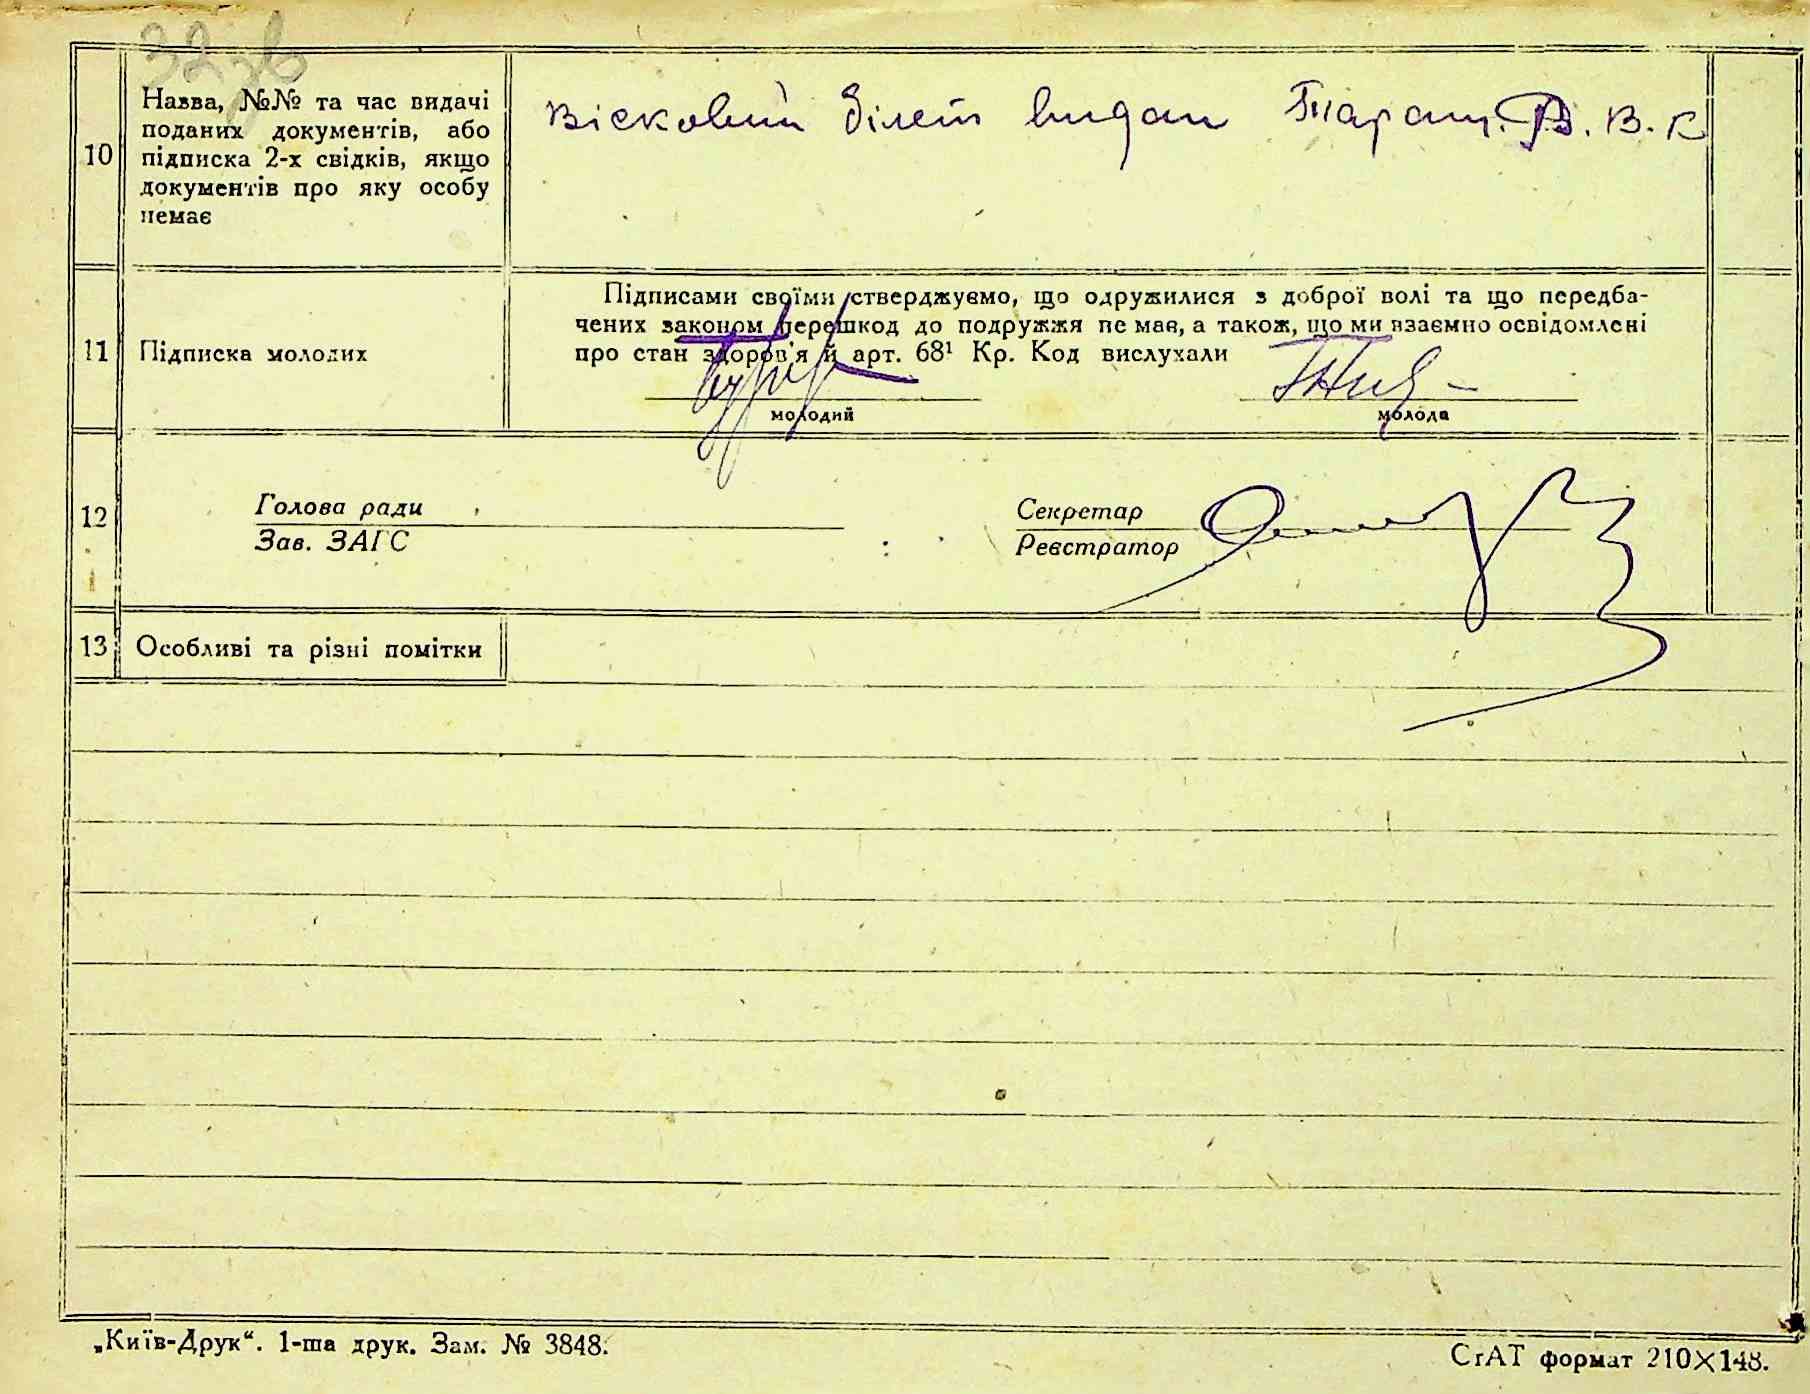 32 зв
10
Назва, №№ та час видачі
поданих документів, або
підписка 2-х свідків, якщо
документів про яку особу
немає
Вісковий білет видан Таращ. Р. В. К
11
Підписка молодих
Підписами своїми стверджуємо, що одружилися з доброї волі та що передба-
чених законом перешкод до подружжя не має, а також, що ми взаємно освідомлені
про стан здоров'я й арт. 68¹ Кр. Код вислухали
молодий
молода
12
Голова ради
Зав. ЗАГС
Секретар
Реєстратор
13
Особливі та різні помітки
„Київ-Друк“. 1-ша друк. Зам. № 3848.
СтАТ формат 210×148.